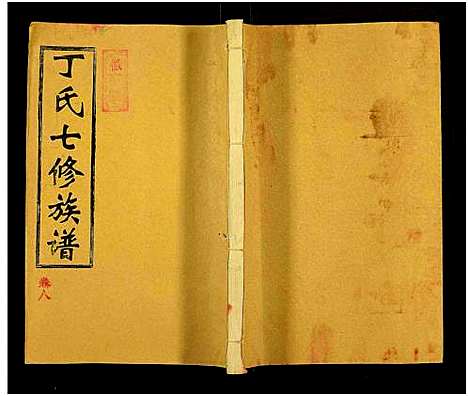 丁氏七修族谱
卷八